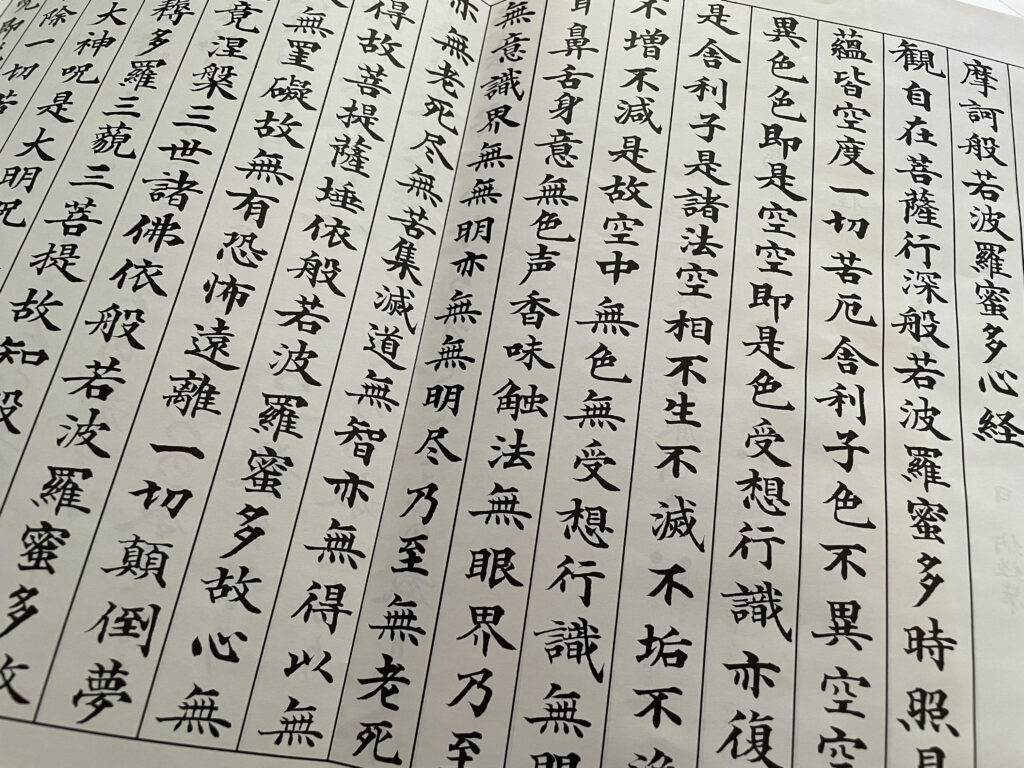 摩訶般若波羅蜜多心経
観自在菩薩行深般若波羅蜜多時照見
蘊皆空度一切苦厄舎利子色不異空空
異色色即是空空即是色受想行識亦復
是舎利子是諸法空相不生不滅不垢不
不増不減是故空中無色無受想行識無
耳鼻舌身意無色声香味触法無眼界乃至
無意識界無無明亦無無明尽乃至無老死
亦無老死尽無苦集滅道無智亦無得以無
得故菩提薩埵依般若波羅蜜多故心無
無罣礙故無有恐怖遠離一切顛倒夢
竟涅槃三世諸佛依般若波羅蜜多故
耨多羅三藐三菩提故知般
大神呪是大明呪
除一切苦